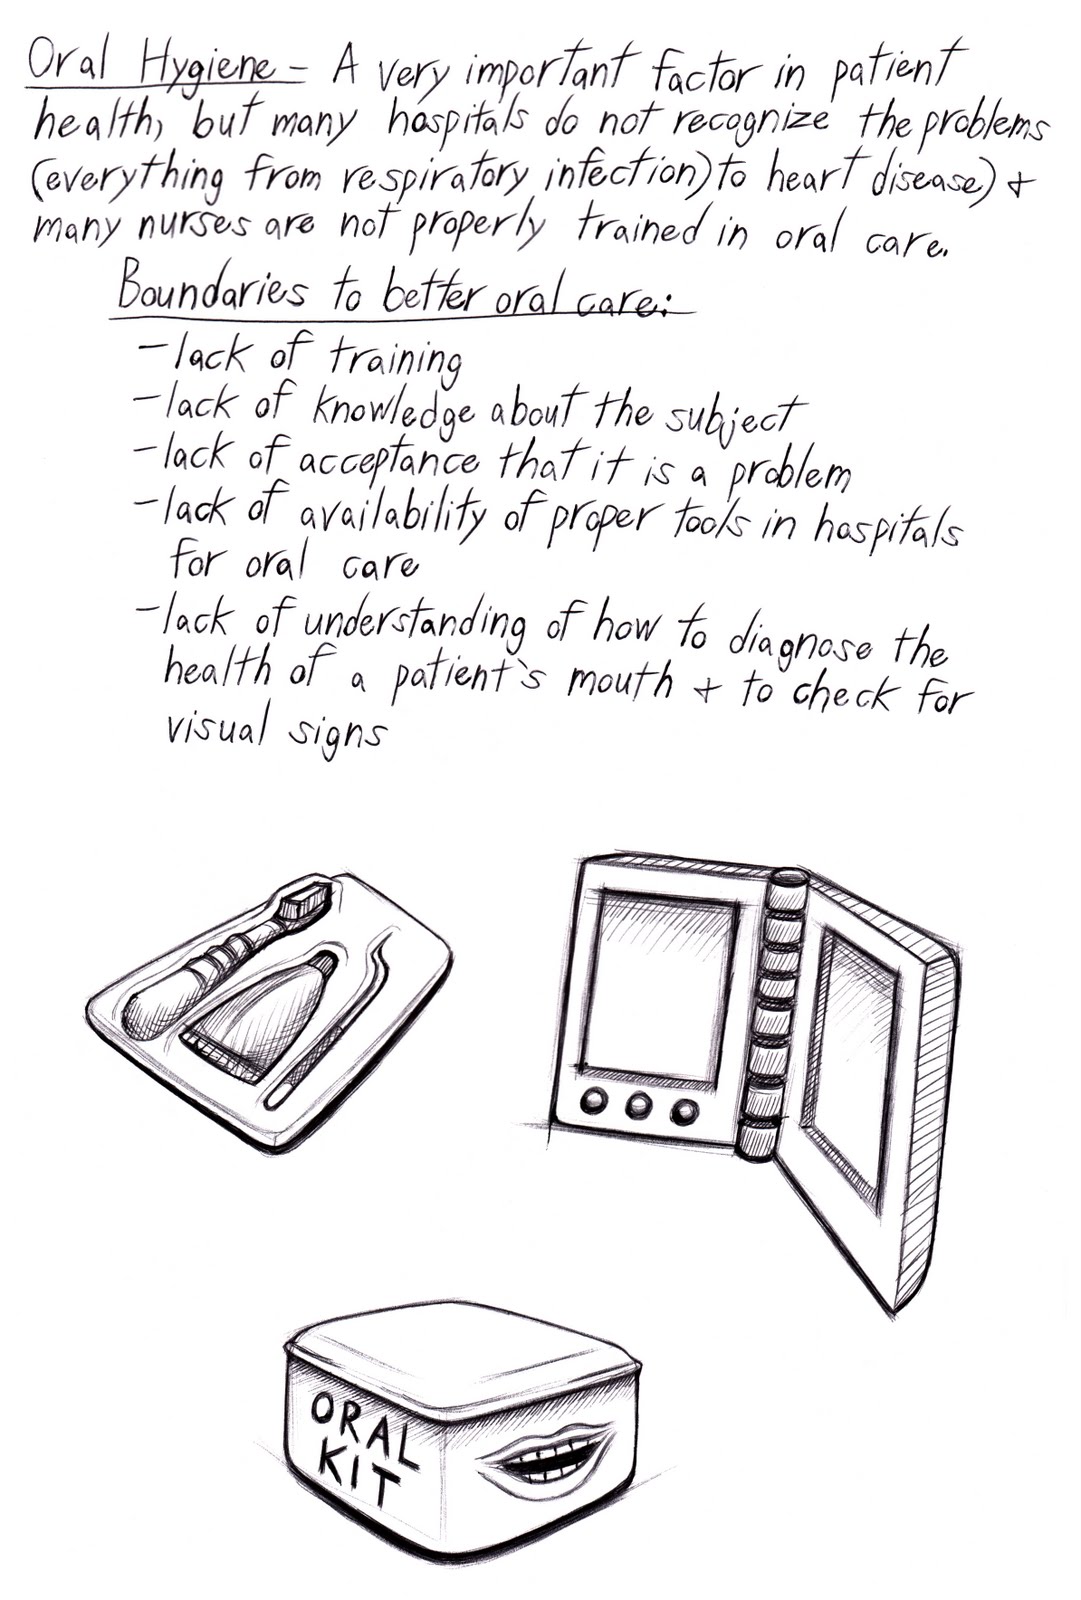 Oral Hygiene - A very important factor in patient
health, but many hospitals do not recognize the problems
(everything from respiratory infection) to heart disease) +
many nurses are not properly trained in oral care.
Boundaries to better oral care:
- lack of training
- lack of knowledge about the subject
- lack of acceptance that it is a problem
- lack of availability of proper tools in hospitals
for oral care
- lack of understanding of how to diagnose the
health of a patient's mouth + to check for
visual signs
ORAL
KIT